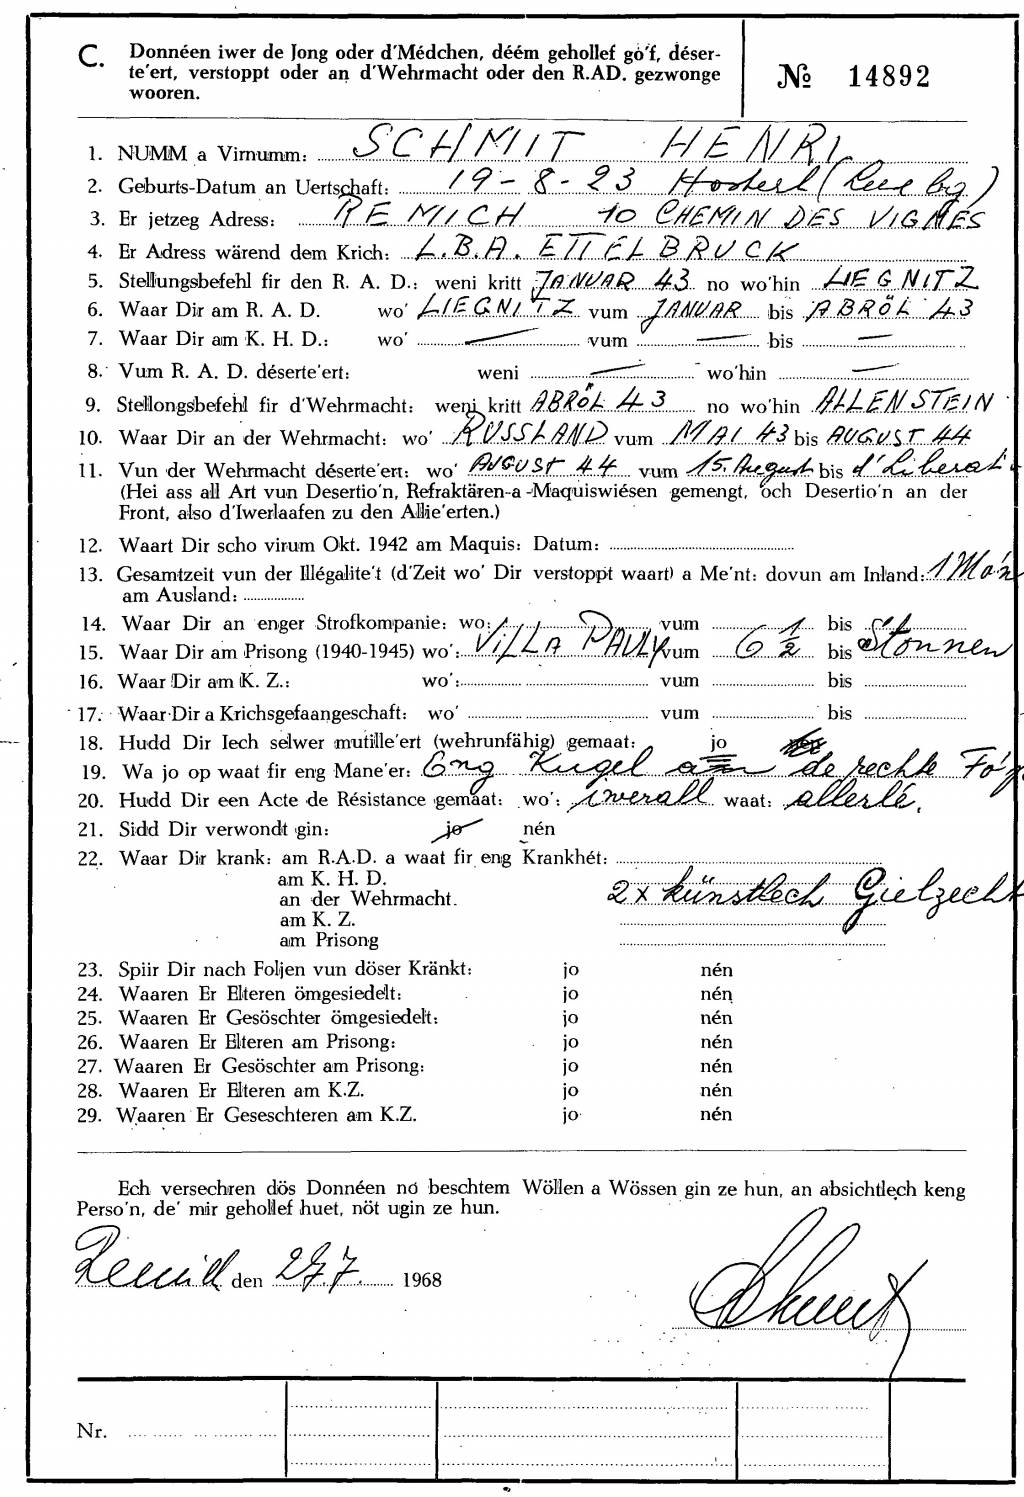 C. Donnéen iwer de Jong oder d'Médchen, déém gehollef go'f, déser-
te'ert, verstoppt oder an d'Wehrmacht oder den R.AD. gezwonge
wooren.
№ 14892
1. NUMM a Virnumm: SCHMIT HENRI
2. Geburts-Datum an Uertschaft: 19-8-23 Hostert
3. Er jetzeg Adress: REMICH 10 CHEMIN DES VIGNES
4. Er Adress wärend dem Krich: L.B.A. ETTELBRUCK
5. Stellungsbefehl fir den R. A. D.: weni kritt JANUAR 43 no wo'hin LIEGNITZ
6. Waar Dir am R. A. D. wo' LIEGNITZ vum JANUAR bis ABRÖL 43
7. Waar Dir am K. H. D.: wo' — vum — bis —
8. Vum R. A. D. déserte'ert: weni — wo'hin —
9. Stellongsbefehl fir d'Wehrmacht: weni kritt ABRÖL 43 no wo'hin ALLENSTEIN
10. Waar Dir an der Wehrmacht: wo' RUSSLAND vum MAI 43 bis AUGUST 44
11. Vun der Wehrmacht déserte'ert: wo' AUGUST 44 vum 15. August bis d'Liberati
(Hei ass all Art vun Desertio'n, Refraktären-a-Maquiswiésen gemengt, och Desertio'n an der
Front, also d'Iwerlaafen zu den Allie'erten.)
12. Waart Dir scho virum Okt. 1942 am Maquis: Datum:
13. Gesamtzeit vun der Illégalite't (d'Zeit wo' Dir verstoppt waart) a Me'nt: dovun am Inland: 1 Mo'n
am Ausland:
14. Waar Dir an enger Strofkompanie: wo: vum bis
15. Waar Dir am Prisong (1940-1945) wo': VILLA PAULY vum 6 ½ bis Stonnen
16. Waar Dir am K. Z.: wo': vum bis
17. Waar Dir a Krichsgefaangeschaft: wo' vum bis
18. Hudd Dir Iech selwer mutille'ert (wehrunfähig) gemaat: jo nén
19. Wa jo op waat fir eng Mane'er: Eng Kugel am de rechte Fo'
20. Hudd Dir een Acte de Résistance gemaat: wo': iwerall waat: allerlé.
21. Sidd Dir verwondt gin: jo nén
22. Waar Dir krank: am R.A.D. a waat fir eng Krankhét:
am K. H. D.
an der Wehrmacht. 2x künstlech Gielzecht
am K. Z.
am Prisong
23. Spiir Dir nach Foljen vun döser Kränkt: jo nén
24. Waaren Er Elteren ömgesiedelt: jo nén
25. Waaren Er Gesöschter ömgesiedelt: jo nén
26. Waaren Er Elteren am Prisong: jo nén
27. Waaren Er Gesöschter am Prisong: jo nén
28. Waaren Er Elteren am K.Z. jo nén
29. Waaren Er Geseschteren am K.Z. jo nén
Ech versechren dös Donnéen no beschtem Wöllen a Wössen gin ze hun, an absichtlech keng
Perso'n, de' mir gehollef huet, nöt ugin ze hun.
Remich den 27.7. 1968
Schmit
Nr.